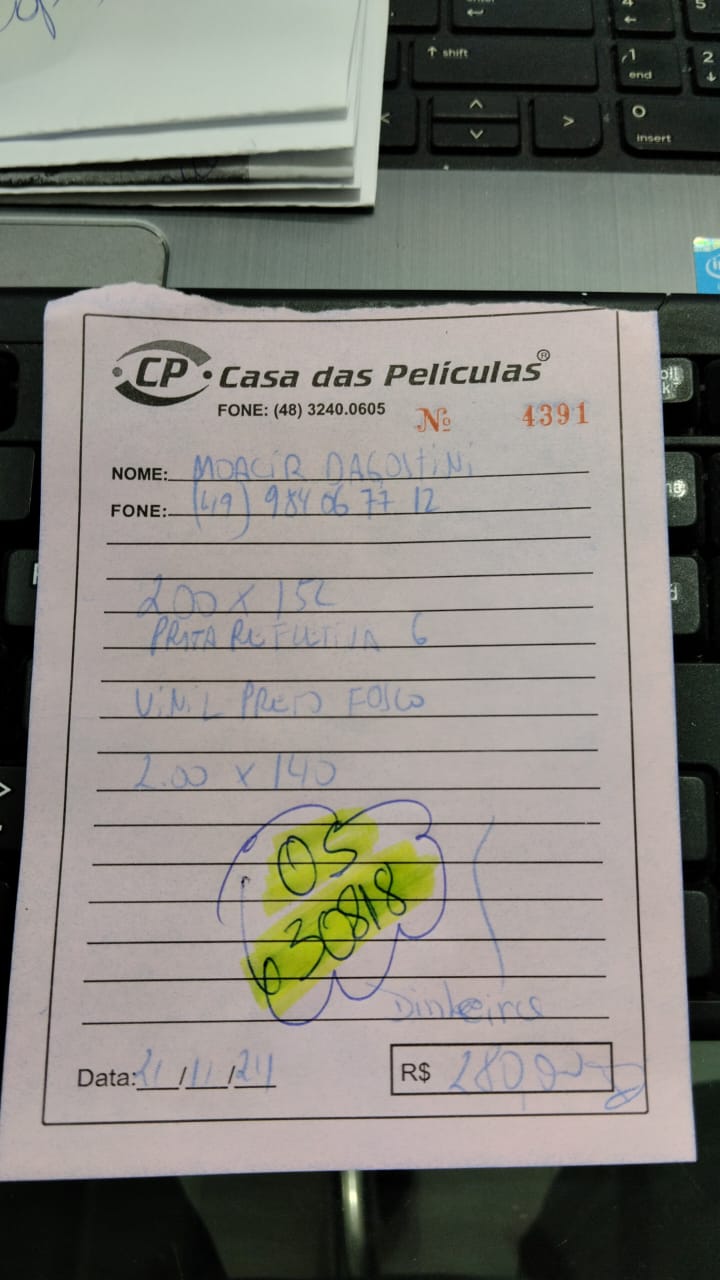 enter
4
5
↑ shift
1
end
2
0
insert
CP Casa das Películas®
FONE: (48) 3240.0605
Nº 4391
NOME: MOACIR DAGOSTINI
FONE: (49) 984 06 77 12
200 x 152
PRATA REFLETIVA 6
VINIL PRETO FOSCO
2.00 x 140
OS
630818
Dinheiro
Data: 21/11/24
R$ 280,00